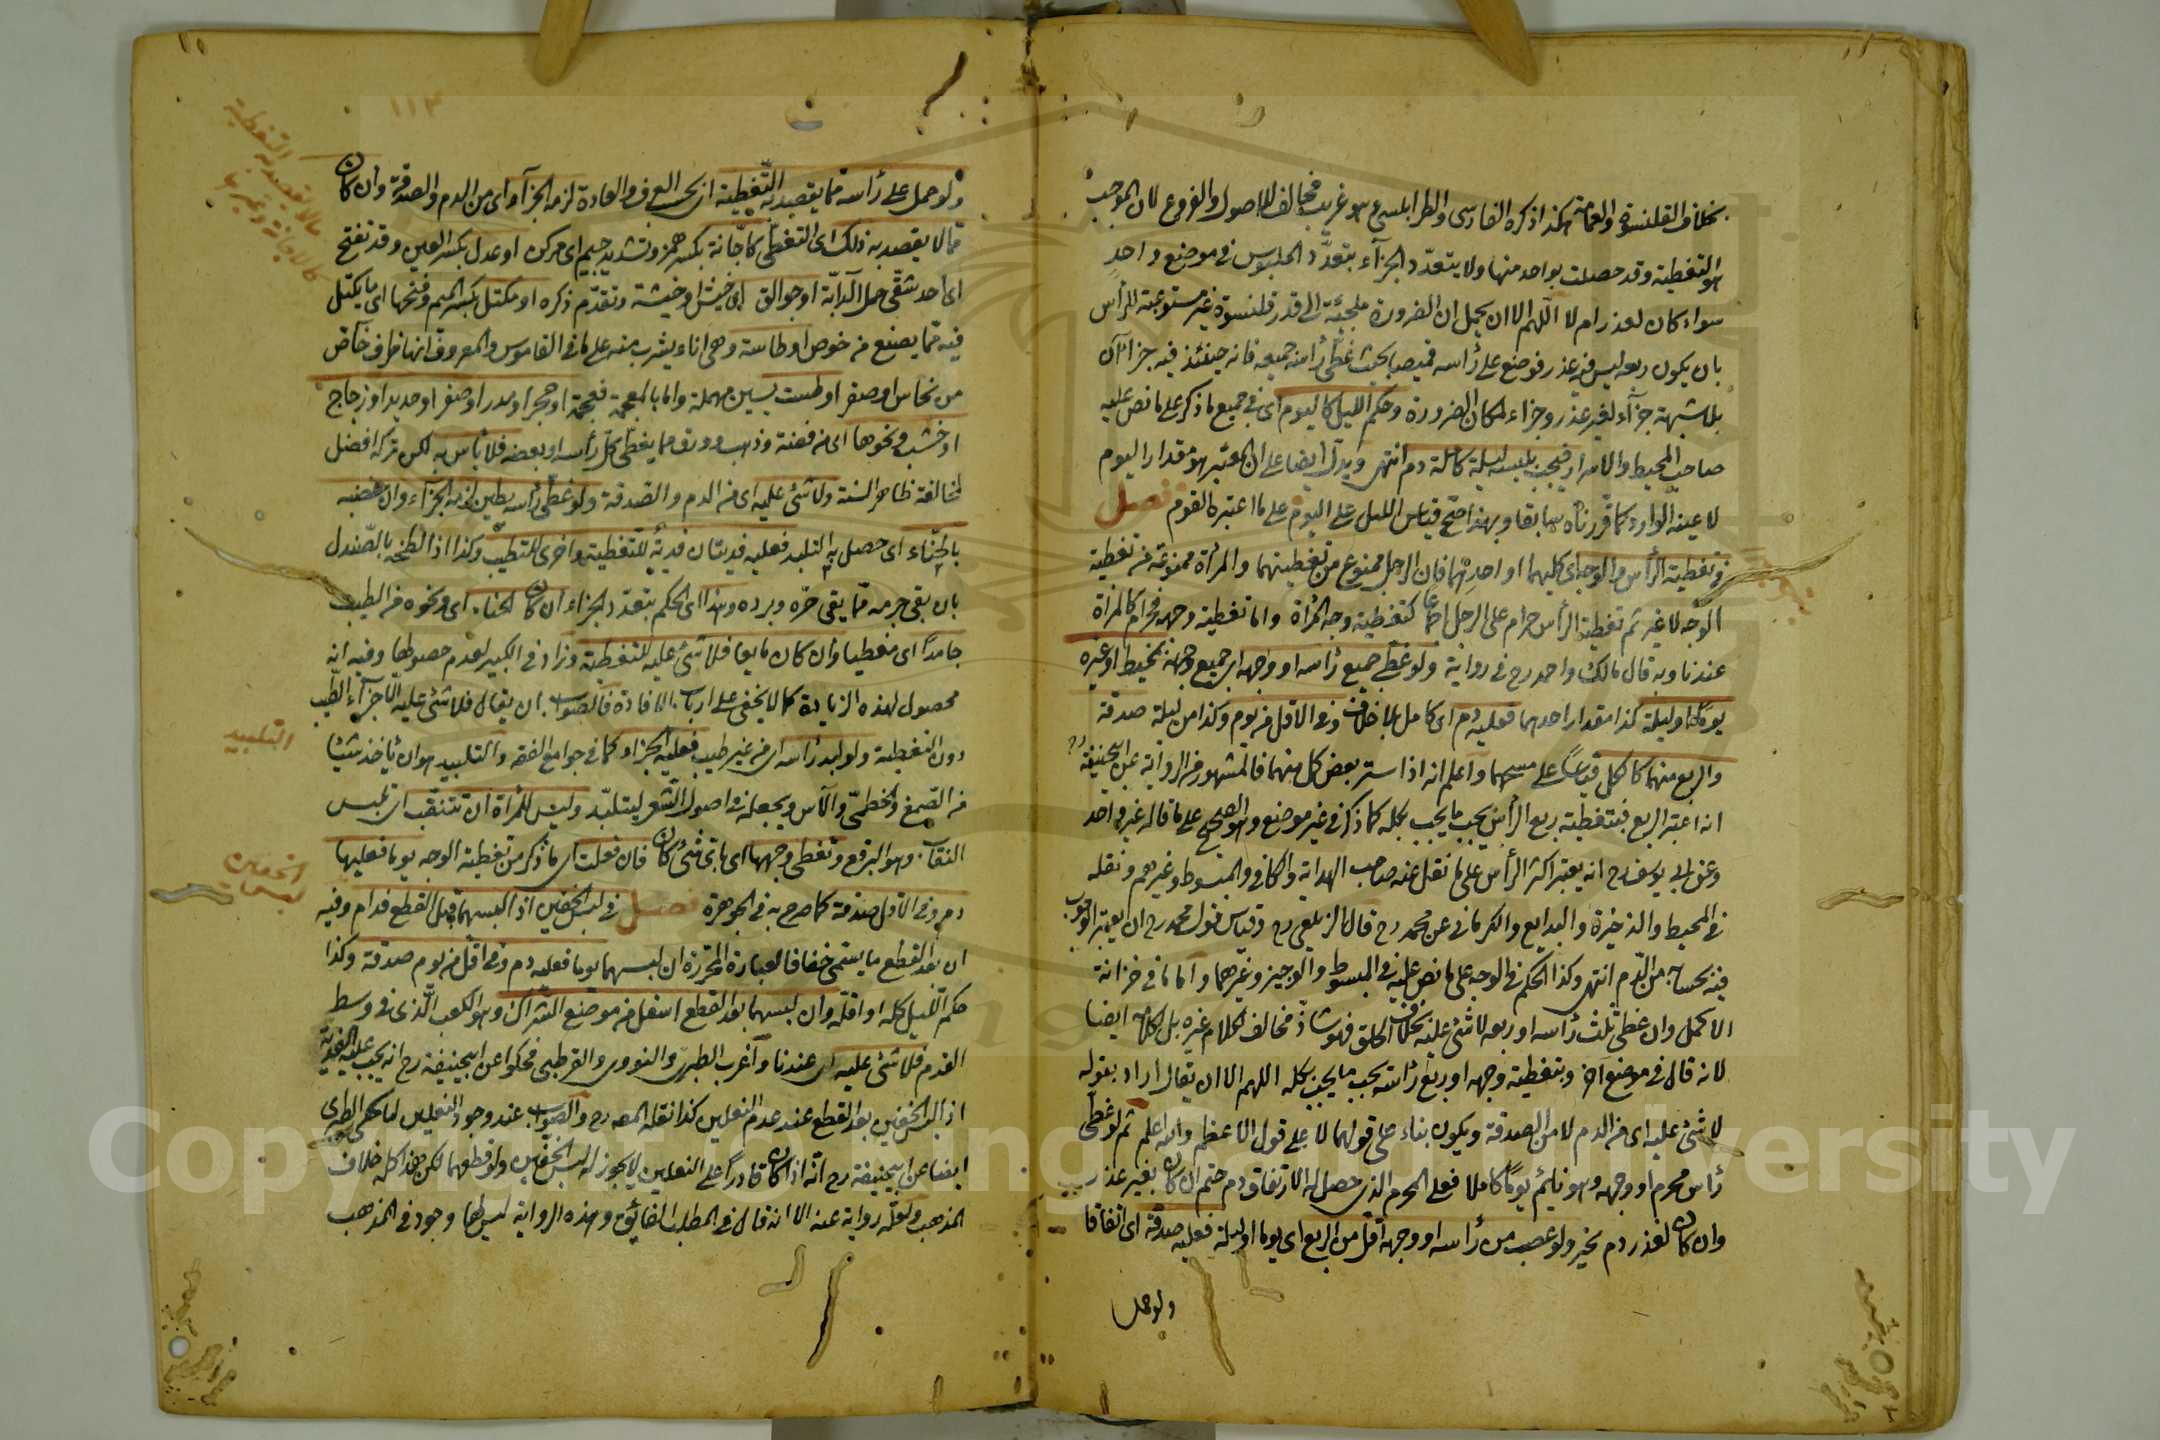 بخلاف القلنسوة والعمامة هكذا ذكره الفارسي والطرابلسي وهو غريب مخالف للاصول والفروع لان الموجب
هو التغطية وقد حصلت بواحد منها ولا يتعدد الجزآء بتعدّد الملبوس في موضع واحد
سواء كان لعذر ام لا اللّهم الا ان يحمل ان الضرورة ملجئة الى قدر قلنسوة غير مستوعبة للرأس
بان يكون ربعه ليس فيه عذر فوضع على رأسه قميصا بحيث غطّى رأسه جميعه فانه حينئذ فيه جزاآن
بلا شبهة جزآء لغير عذر وجزاء لمكان الضرورة وحكم الليل كاليوم اى في جميع ما ذكر على ما نص عليه
صاحب المحيط والاسرار فيجب بلبسه ليلة كاملة دم انتهى ويدل ايضا على ان المعتبر هو مقدار اليوم
لا عينه الوارد كما قررناه سابقا وبهذا صّح قياس الليل على اليوم على ما اعتبره القوم فصل
في تغطية الرأس والوجه اى كليهما او احدهما فان الرجل ممنوع من تغطيتهما والمرأة ممنوعة من تغطية
الوجه لا غير ثم تغطية الرأس حرام على الرجل اجماعا كتغطية وجه المرأة واما تغطية وجهه فحرام كالمرأة
عندنا وبه قال مالك واحمد رح في رواية ولو غطّى جميع رأسه او وجهه اى جميع وجهه بمخيط او غيره
يومًا او ليلة كذا مقدار احدهما فعليه دم اى كامل بلا خلاف وفي الاقل من يوم وكذا من ليلة صدقة
والربع منهما كالكل قياسًا على مسحهما واعلم انه اذا ستر بعض كل منهما فالمشهور من الرواية عن ابي حنيفة رح
انه اعتبر الربع فبتغطية ربع الرأس يجب ما يجب بكله كما ذكر في غير موضع وهو الصحيح على ما قاله غير واحد
وعن ابي يوسف رح انه يعتبر اكثر الرأس على ما نقل عنه صاحب الهداية والكافي والمبسوط وغيرهم ونقله
في المحيط والذخيرة والبدايع والكرماني عن محمد رح قال الزيلعي رح وقياس قول محمد رح ان يعتبر الوجوب
فيه بحسابه من الدّم انتهى وكذا الحكم في الوجه على ما نص عليه في المبسوط والوجيز وغيرهما واما ما في خزانة
الاكمل وان غطى ثلث رأسه او ربعه لا شئ عليه بخلاف الحلق فهو شاذّ مخالف لكلام غيره بل لكلامه ايضا
لانه قال في موضع آخر وبتغطية وجهه او ربع رأسه يجب ما يجب بكله اللهم الا ان يقال اراد بقوله
لا شئ عليه اى من الدم لا من الصدقة ويكون بناء على قولهما لا على قول الاعظم والله اعلم ثم لو غطّى
رأس محرم او وجهه وهو نائم يومًا كاملا فعلى المحرم الذى حصل له الارتفاق دم حتم ان كان بغير عذر
وان كان لعذر دم يخير ولو عصب من رأسه او وجهه اقل من الربع اى يوما او ليلة فعليه صدقة اى اتفاقا
ولو حمل
١١٣
ولو حمل على رأسه مما يقصد به التّغطية اى بحسب العرف والعادة لزمه الجزآء اى من الدم والصدقة وان كان
مما لا يقصد به ذلك اى التغطى كاجّانة بكسر همز وتشديد جيم اى مركن او عدل بكسر العين وقد تفتح
اى احد شقّى حمل الدآبّة او جوالق اى خيش او خيشة وتقدّم ذكره او مكتل بكسر الميم وفتحها اى ما يكتل
فيه مما يصنع من خوص او طاسة وهي اناء يشرب منه على ما في القاموس والمعروف انها ظرف خاصّ
من نحاس او صفر او طست بسين مهملة واما بالمعجمة فعجمة او حجر او مدر او صفر او حديد او زجاج
او خشب ونحوها اى من فضة وذهب وورق مما يغطى كل رأسه او بعضه فلا بأس به لكن تركه افضل
لمخالفة ظاهر السنة ولا شئ عليه اى من الدم والصدقة ولو غطّى رأسه بطين لزمه الجزآء وان خضبه
بالحنّاء اى حصل به التلبد فعليه فديتان فدية للتغطية واخرى للتطيب وكذا اذا لطخه بالصّندل
بان بقى جرمه مما يقى حرّه وبرده وهذا اى الحكم بتعدّد الجزاء ان كان الحناء اى ونحوه من الطيب
جامدًا اى مغطيا وان كان مايعا فلا شئ عليه للتغطية وزاد في الكبير لعدم حصولها وفيه انه
محصول لهذه الزيادة كما لا يخفى على ارباب الافادة فالصواب ان يقال فلا شئ عليه الا جزآء الطيب
دون التغطية ولو لبد رأسه اى من غير طيب فعليه الجزاء كما في جوامع الفقه والتلبيد هو ان يأخذ شيئا
من الصّمغ والخطمىّ والآس ويجعله في اصول الشعر ليتلبّد وليس للمرأة ان تتنقّب اى تلبس
النقاب وهو البرقع وتغطى وجهها اى باىّ شئ كان فان فعلت اى ما ذكر من تغطية الوجه يوما فعليها
دم وفي الاقل صدقة كما صرح به في الجوهرة فصل في لبس الخفين اذا لبسهما قبل القطع فدام وفيه
ان بعد القطع ما يسمّى خفا فالعبارة المحررة ان لبسهما يوما فعليه دم وفي اقل من يوم صدقة وكذا
حكم الليل كله او اقلّه وان لبسهما بعد القطع اسفل من موضع الشراك وهو الكعب الّذى في وسط
القدم فلا شئ عليه اى عندنا واغرب الطبرى والنووى والقرطبى فحكوا عن ابي حنيفة رح انه يجب عليه الفدية
اذا لبس الخفين بعد القطع عند عدم النعلين كذا نقله المصـ رح والصواب عند وجود النعلين لما حكى الطبرى
ايضا عن ابي حنيفة رح انّه اذا كان قادرا على النعلين لا يجوز له لبس الخفين ولو قطعهما لكن هذا كله خلاف
المذهب ولعلّه رواية عنه الا انه قال في المطلب الفائق وهذه الرواية ليس لها وجود في المذهب
التلبيد